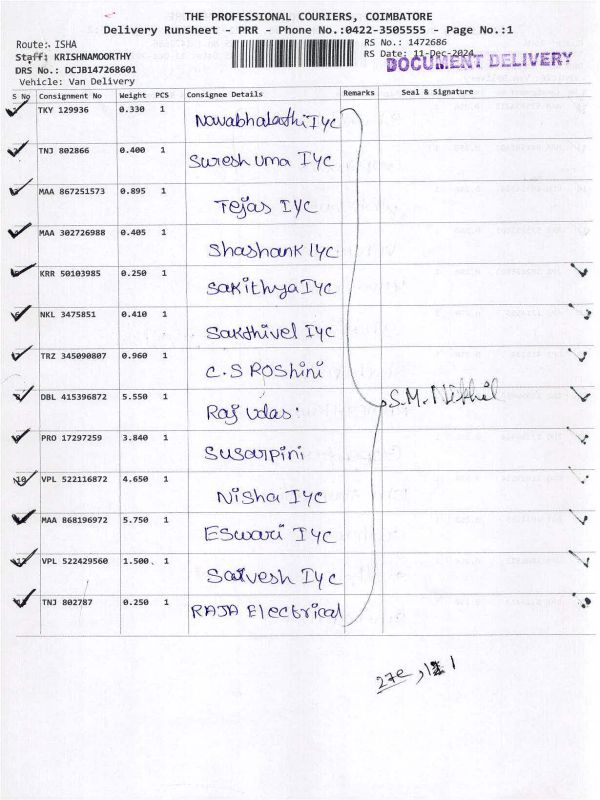 THE PROFESSIONAL COURIERS, COIMBATORE
Delivery Runsheet - PRR - Phone No.:0422-3505555 - Page No.:1
Route: ISHA
RS No.: 1472686
Staff: KRISHNAMOORTHY
RS Date: 11-Dec-2024
DOCUMENT DELIVERY
DRS No.: DCJB147268601
Vehicle: Van Delivery
S No Consignment No Weight PCS Consignee Details Remarks Seal & Signature
TKY 129936 0.330 1 Nawabhalathi IYC
TNJ 802866 0.400 1 Suresh uma IYC
MAA 867251573 0.895 1 Tejas IYC
MAA 302726988 0.405 1 Shashank IYC
KRR 50103985 0.250 1 Sakithya IYC
NKL 3475851 0.410 1 Sakthivel IYC
TRZ 345090807 0.960 1 C.S ROShini
DBL 415396872 5.550 1 Raj udas
S.M. Nithil
PRO 17297259 3.840 1 Susarpini
10 VPL 522116872 4.650 1 Nisha IYC
MAA 868196972 5.750 1 Eswari IYC
12 VPL 522429560 1.500 1 Sarvesh IYC
TNJ 802787 0.250 1 RAJA Electrical